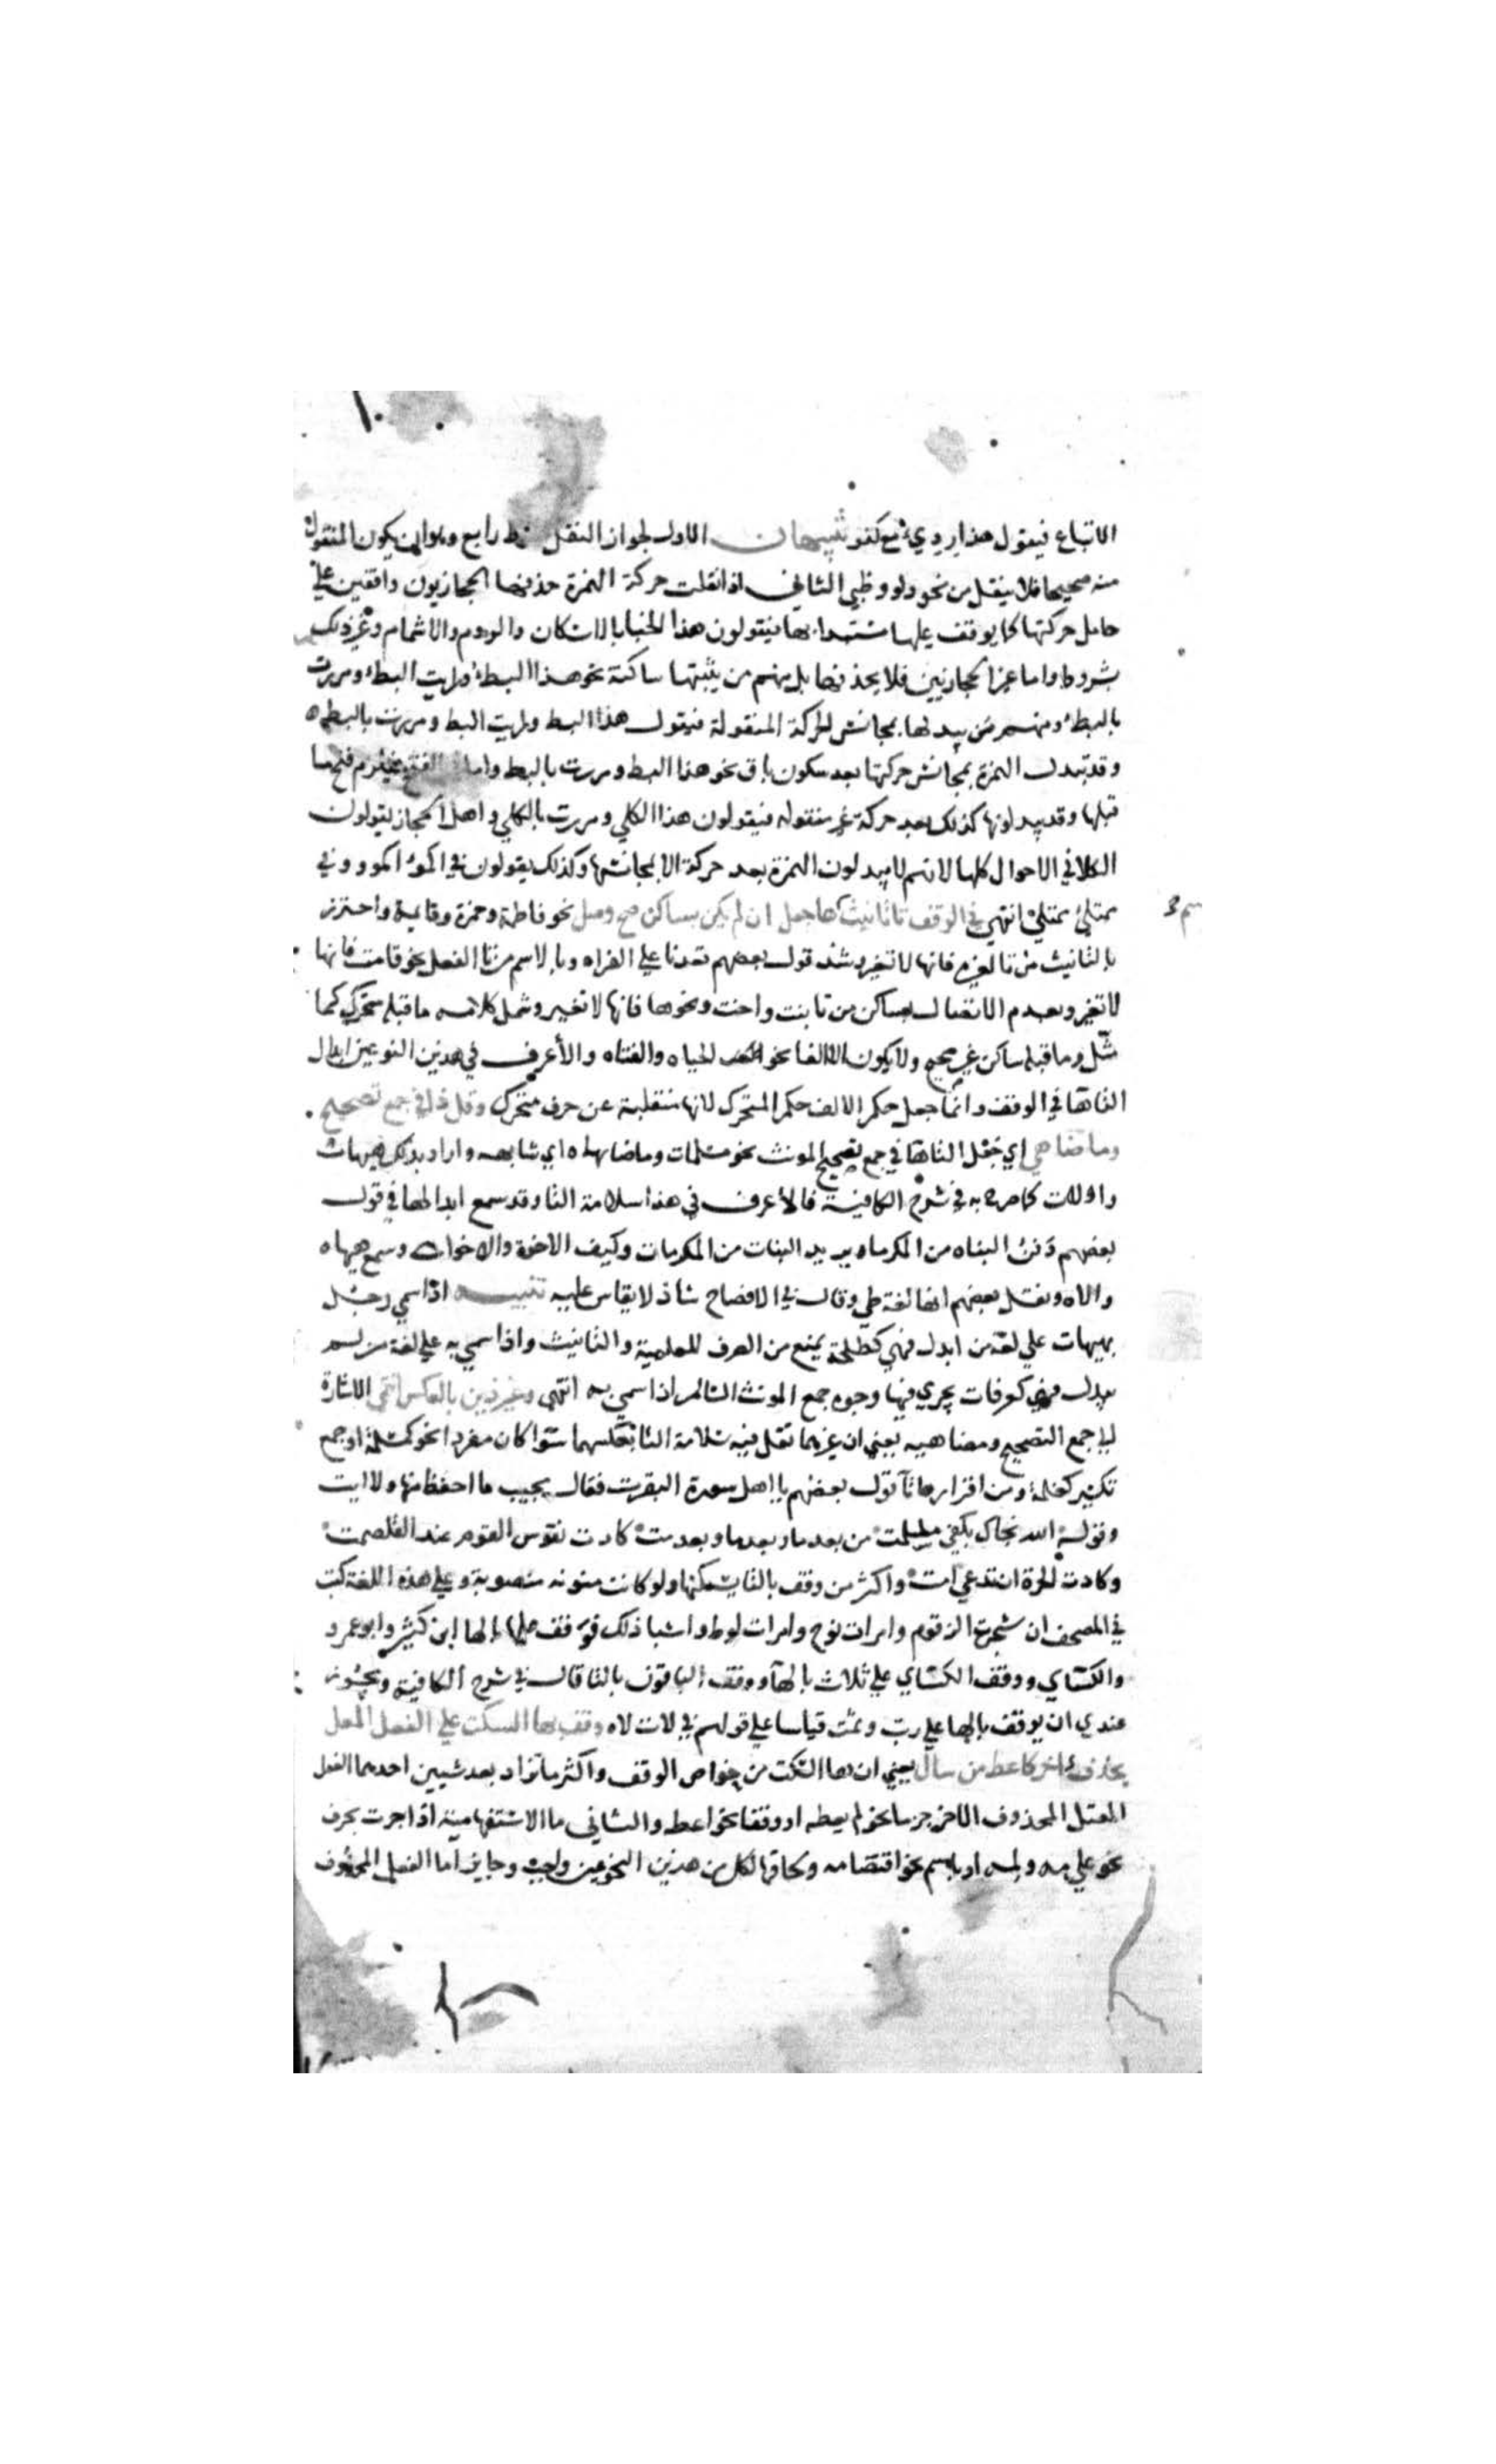 الاتباع فيقول هذا ردي مع كفو تنبيهان الاول لجواز النقل شرط رابع وهو ان يكون المنقول
منه صحيحا فلا ينقل من نحو دلو وظبي الثاني اذا نقلت حركة الهمزة حذفها الحجازيون واقفين علي
حامل حركتها كما يوقف عليها مستبدا بها فيقولون هذا الخبا بالاسكان والروم والاشمام وغير ذلك
بشروطه واما غير الحجازيين فلا يحذفها بل منهم من يثبتها ساكنة نحو هذا البطء ورايت البطء ومررت
بالبطء ومنهم من يبدلها بمجانس الحركة المنقولة فيقول هذا البطو ورايت البطا ومررت بالبطي
وقد تبدل الهمزة بمجانس حركتها بعد سكون باق نحو هذا البطو ومررت بالبطي واما في الفتح فيلزم فتح ما
قبلها وقد يبدلونها كذلك بعد حركة غير منقوله فيقولون هذا الكلو ومررت بالكلي واهل الحجاز يقولون
الكلا في الاحوال كلها لانهم لا يبدلون الهمزة بعد حركة الا بمجانسها وكذلك يقولون في اكمؤ اكمو وفي
ممتلئ ممتلي انتهي في الوقف تا تانيث الاسم ها جعل ان لم يكن بساكن صح وصل نحو فاطمة وحمزة وقايمة واحترز
بالتانيث من تا لغيره فانها لا تغير وشذ قول بعضهم قعدنا علي الفراه وبالاسم من تا الفعل نحو قامت فانها
لا تغير وبعدم الاتصال بساكن من تا بنت واخت ونحوها فانها لا تغير وشمل كلامه ما قبله متحرك كما
مثل وما قبله ساكن غير صحيح ولا يكون الا الفا نحو الحياه والفتاه والأعرف في هذين النوعين ابدال
التا ها في الوقف وانما جعل حكم الالف حكم المتحرك لانها منقلبة عن حرف متحرك وقل ذا في جمع تصحيح
وما ضاهي اي جعل التا ها في جمع تصحيح المونث نحو مسلمات وما ضاهاه اي شابهه واراد بذلك هيهات
واولات كما صرح به في شرح الكافية فالأعرف في هذا سلامة التا وقد سمع ابدالها في قول
بعضهم دفن البناه من المكرماه يريد البنات من المكرمات وكيف الاخوة والاخواه وسمع هيهاه
والاه ونقل بعضهم انها لغة طي وقال في الافصاح شاذ لا يقاس عليه تنبيه اذا سمي رجل
بهيهات علي لغة من ابدل فهي كطلحة يمنع من الصرف للعلمية والتانيث واذا سمي به علي لغة من لم
يبدل فهي كعرفات يجري فيها وجوه جمع المونث السالم اذا سمي به انتهي وغير ذين بالعكس انتمي الاشارة
الي جمع التصحيح ومضاهيه يعني ان غيرهما تقل فيه سلامة التا بعكسهما سوا كان مفردا نحو كمسلمة او جمع
تكسير كغلمة ومن اقرارها تا قول بعضهم يا اهل سورة البقرت فقال مجيب ما احفظ منها ولا ايت
وقوله الله نجاك بكفي مسلمت من بعد ما وبعد ما وبعد مت كادت نفوس القوم عند الغلصمت
وكادت الحرة ان تدعي امت واكثر من وقف بالتا يسكنها ولو كانت منونه منصوبة وعلي هذه اللغة كتب
في المصحف ان شجرت الزقوم وامرات نوح وامرات لوط واشبا ذلك فوقف عليها بالها ابن كثير وابو عمرو
والكساي ووقف الكساي علي ثلاث بالها ووقف الباقون بالتا قال في شرح الكافية ويجوز
عندي ان يوقف بالها علي ربت وثمت قياسا علي قولهم في لات لاه وقف بها السكت علي الفعل المعل
بحذف اخر كاعط من سال يعني ان ها السكت من خواص الوقف واكثر ما تزاد بعد شيين احدهما الفعل
المعتل المحذوف الاخر جزما نحو لم يعطه او وقفا نحو اعطه والثاني ما الاستفهامية اذا جرت بحرف
نحو علي مه ولمه او باسم نحو اقتضا مه ولحاقها لكل من هذين النوعين واجب وجايز اما الفعل المحذوف